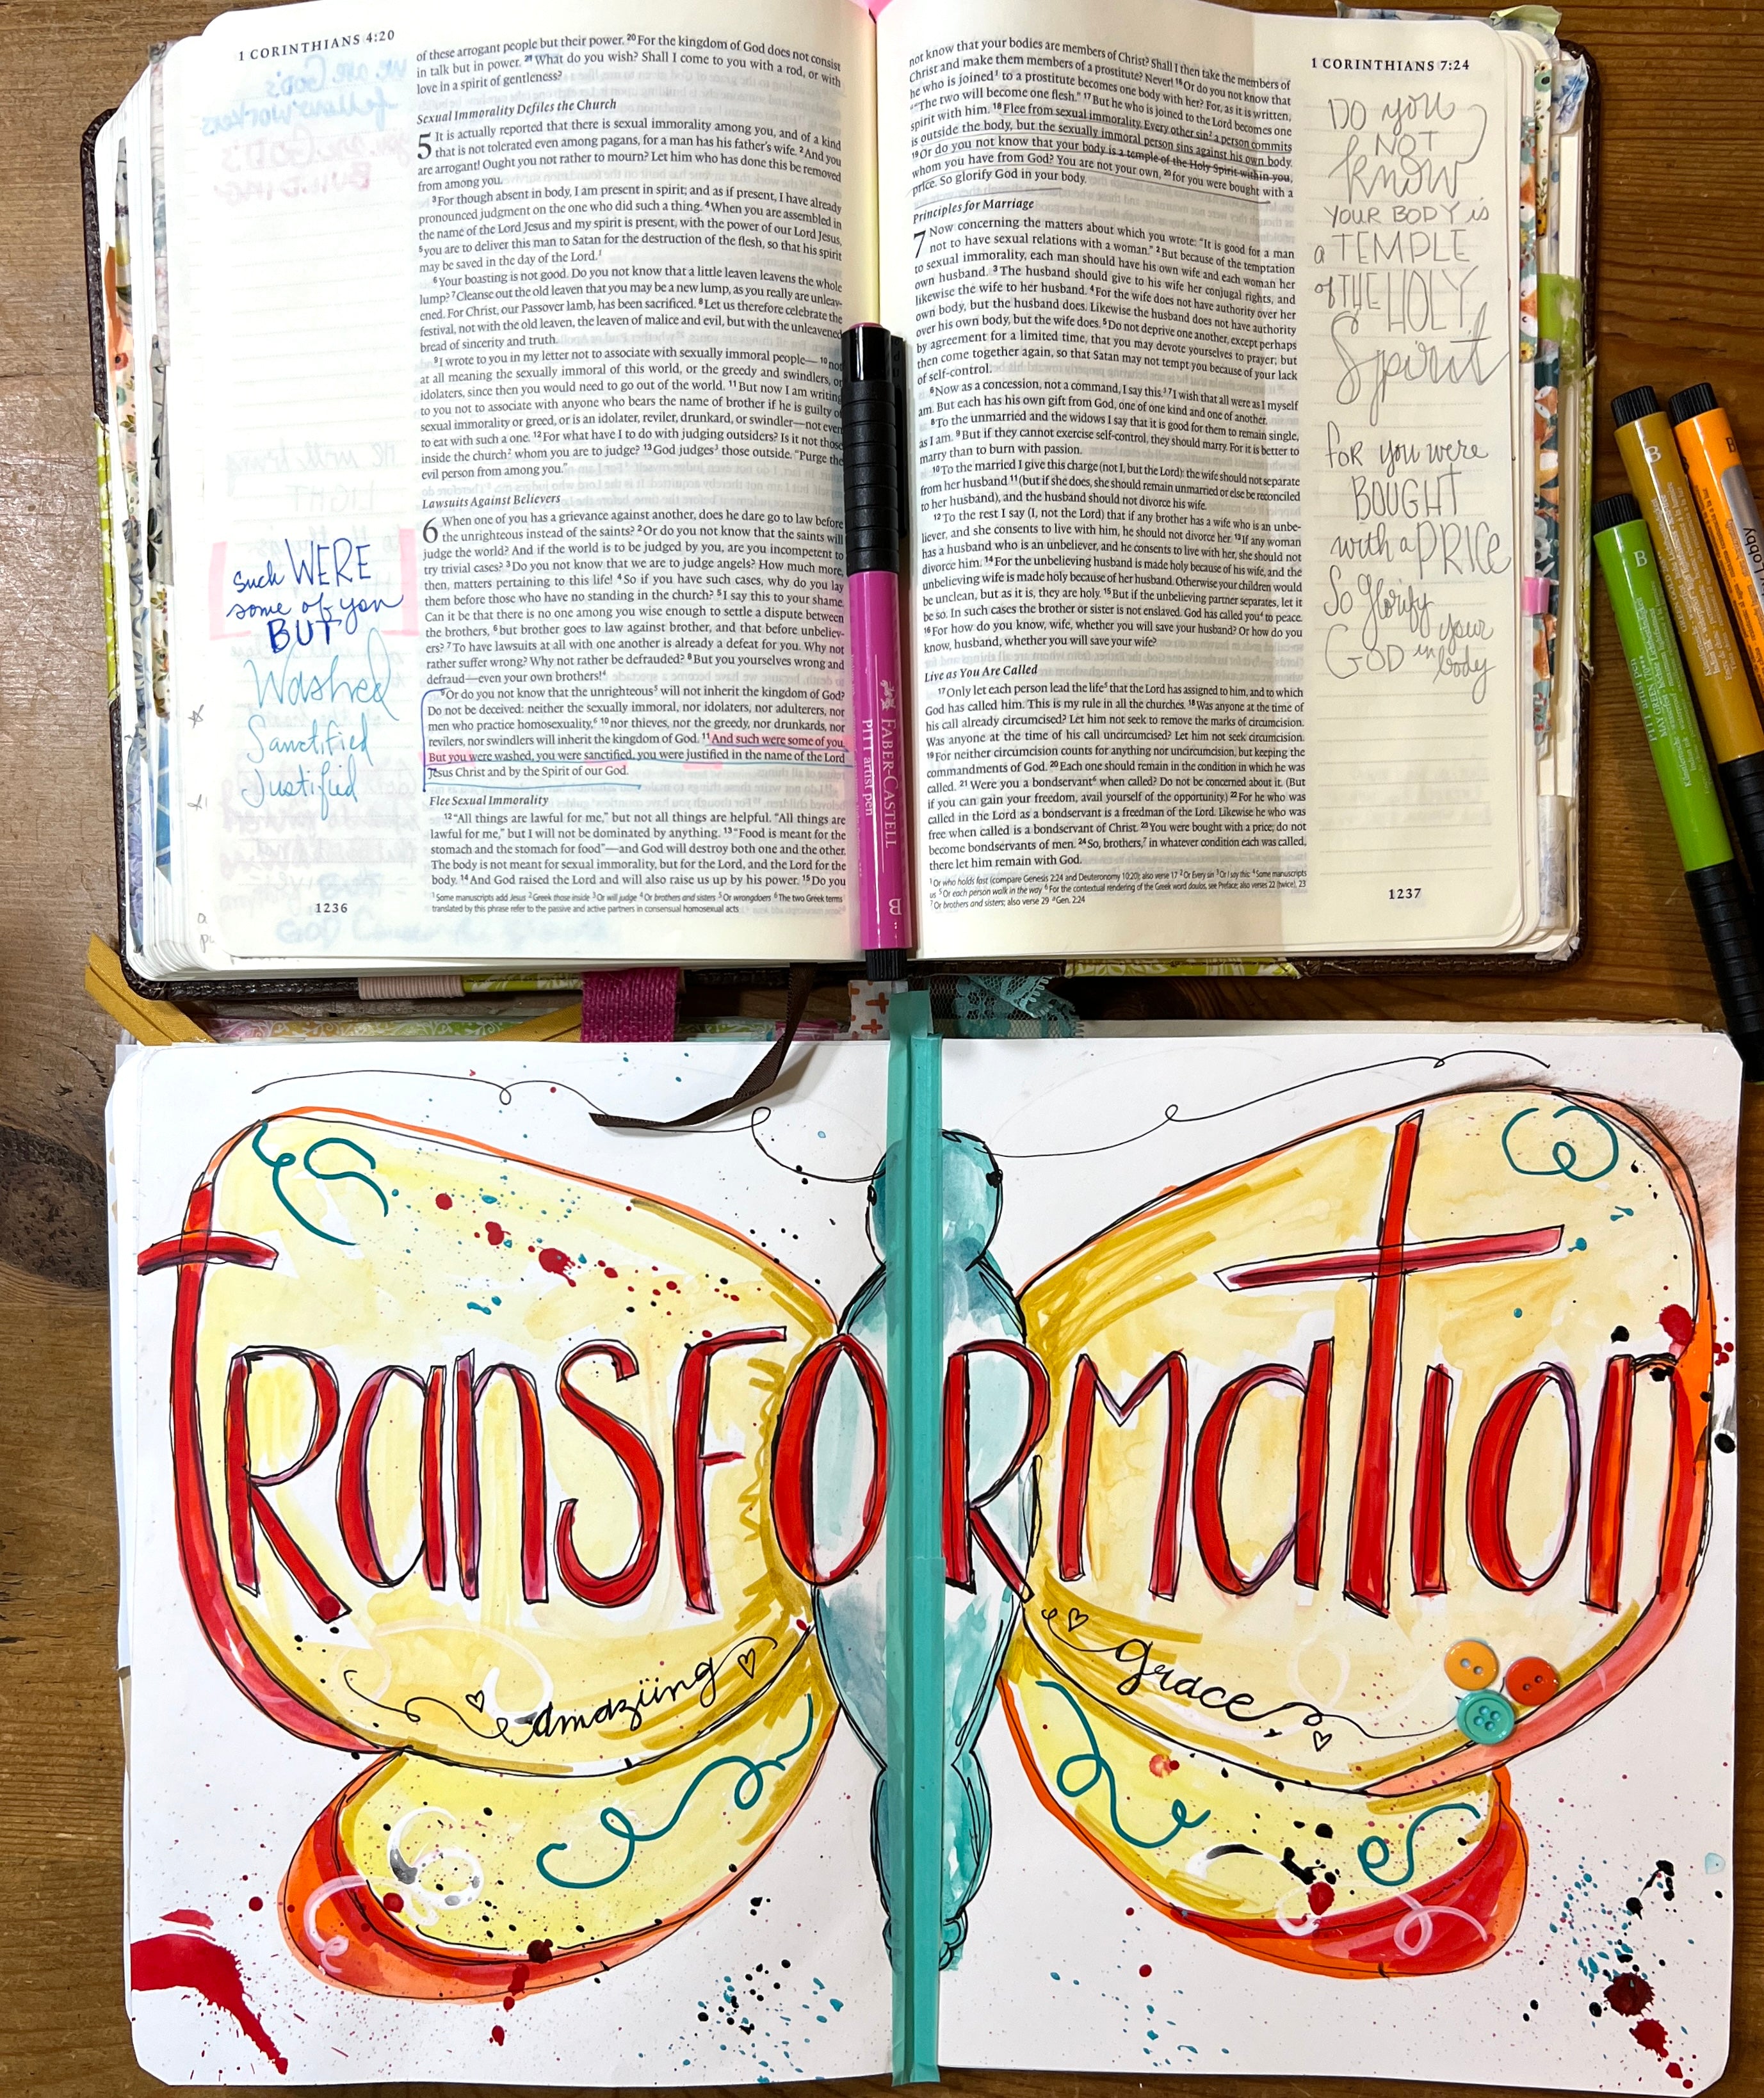 1 CORINTHIANS 4:20
of these arrogant people but their power. 20 For the kingdom of God does not consist
in talk but in power. 21 What do you wish? Shall I come to you with a rod, or with
love in a spirit of gentleness?
Sexual Immorality Defiles the Church
5 It is actually reported that there is sexual immorality among you, and of a kind
that is not tolerated even among pagans, for a man has his father's wife. 2 And you
are arrogant! Ought you not rather to mourn? Let him who has done this be removed
from among you.
3 For though absent in body, I am present in spirit; and as if present, I have already
pronounced judgment on the one who did such a thing. 4 When you are assembled in
the name of the Lord Jesus and my spirit is present, with the power of our Lord Jesus,
5 you are to deliver this man to Satan for the destruction of the flesh, so that his spirit
may be saved in the day of the Lord.1
6 Your boasting is not good. Do you not know that a little leaven leavens the whole
lump? 7 Cleanse out the old leaven that you may be a new lump, as you really are unleav-
ened. For Christ, our Passover lamb, has been sacrificed. 8 Let us therefore celebrate the
festival, not with the old leaven, the leaven of malice and evil, but with the unleavened
bread of sincerity and truth.
9 I wrote to you in my letter not to associate with sexually immoral people— 10 not
at all meaning the sexually immoral of this world, or the greedy and swindlers, or
idolaters, since then you would need to go out of the world. 11 But now I am writing
to you not to associate with anyone who bears the name of brother if he is guilty of
sexual immorality or greed, or is an idolater, reviler, drunkard, or swindler—not even
to eat with such a one. 12 For what have I to do with judging outsiders? Is it not those
inside the church2 whom you are to judge? 13 God judges3 those outside. "Purge the
evil person from among you."
Lawsuits Against Believers
6 When one of you has a grievance against another, does he dare go to law before
the unrighteous instead of the saints? 2 Or do you not know that the saints will
judge the world? And if the world is to be judged by you, are you incompetent to
try trivial cases? 3 Do you not know that we are to judge angels? How much more,
then, matters pertaining to this life! 4 So if you have such cases, why do you lay
them before those who have no standing in the church? 5 I say this to your shame.
Can it be that there is no one among you wise enough to settle a dispute between
the brothers, 6 but brother goes to law against brother, and that before unbeliev-
ers? 7 To have lawsuits at all with one another is already a defeat for you. Why not
rather suffer wrong? Why not rather be defrauded? 8 But you yourselves wrong and
defraud—even your own brothers!4
9 Or do you not know that the unrighteous5 will not inherit the kingdom of God?
Do not be deceived: neither the sexually immoral, nor idolaters, nor adulterers, nor
men who practice homosexuality,6 10 nor thieves, nor the greedy, nor drunkards, nor
revilers, nor swindlers will inherit the kingdom of God. 11 And such were some of you.
But you were washed, you were sanctified, you were justified in the name of the Lord
Jesus Christ and by the Spirit of our God.
Flee Sexual Immorality
12 "All things are lawful for me," but not all things are helpful. "All things are
lawful for me," but I will not be dominated by anything. 13 "Food is meant for the
stomach and the stomach for food"—and God will destroy both one and the other.
The body is not meant for sexual immorality, but for the Lord, and the Lord for the
body. 14 And God raised the Lord and will also raise us up by his power. 15 Do you
1 Some manuscripts add Jesus 2 Greek those inside 3 Or will judge 4 Or brothers and sisters 5 Or wrongdoers 6 The two Greek terms
translated by this phrase refer to the passive and active partners in consensual homosexual acts
1236
such WERE
some of you
BUT
Washed
Sanctified
Justified
FABER-CASTELL
PITT artist pen
B
1 CORINTHIANS 7:24
not know that your bodies are members of Christ? Shall I then take the members of
Christ and make them members of a prostitute? Never! 16 Or do you not know that
he who is joined1 to a prostitute becomes one body with her? For, as it is written,
"The two will become one flesh." 17 But he who is joined to the Lord becomes one
spirit with him. 18 Flee from sexual immorality. Every other sin2 a person commits
is outside the body, but the sexually immoral person sins against his own body.
19 Or do you not know that your body is a temple of the Holy Spirit within you,
whom you have from God? You are not your own, 20 for you were bought with a
price. So glorify God in your body.
Principles for Marriage
7 Now concerning the matters about which you wrote: "It is good for a man
not to have sexual relations with a woman." 2 But because of the temptation
to sexual immorality, each man should have his own wife and each woman her
own husband. 3 The husband should give to his wife her conjugal rights, and
likewise the wife to her husband. 4 For the wife does not have authority over her
own body, but the husband does. Likewise the husband does not have authority
over his own body, but the wife does. 5 Do not deprive one another, except perhaps
by agreement for a limited time, that you may devote yourselves to prayer; but
then come together again, so that Satan may not tempt you because of your lack
of self-control.
6 Now as a concession, not a command, I say this.3 7 I wish that all were as I myself
am. But each has his own gift from God, one of one kind and one of another.
8 To the unmarried and the widows I say that it is good for them to remain single,
as I am. 9 But if they cannot exercise self-control, they should marry. For it is better to
marry than to burn with passion.
10 To the married I give this charge (not I, but the Lord): the wife should not separate
from her husband 11 (but if she does, she should remain unmarried or else be reconciled
to her husband), and the husband should not divorce his wife.
12 To the rest I say (I, not the Lord) that if any brother has a wife who is an unbe-
liever, and she consents to live with him, he should not divorce her. 13 If any woman
has a husband who is an unbeliever, and he consents to live with her, she should not
divorce him. 14 For the unbelieving husband is made holy because of his wife, and the
unbelieving wife is made holy because of her husband. Otherwise your children would
be unclean, but as it is, they are holy. 15 But if the unbelieving partner separates, let it
be so. In such cases the brother or sister is not enslaved. God has called you4 to peace.
16 For how do you know, wife, whether you will save your husband? Or how do you
know, husband, whether you will save your wife?
Live as You Are Called
17 Only let each person lead the life5 that the Lord has assigned to him, and to which
God has called him. This is my rule in all the churches. 18 Was anyone at the time of
his call already circumcised? Let him not seek to remove the marks of circumcision.
Was anyone at the time of his call uncircumcised? Let him not seek circumcision.
19 For neither circumcision counts for anything nor uncircumcision, but keeping the
commandments of God. 20 Each one should remain in the condition in which he was
called. 21 Were you a bondservant6 when called? Do not be concerned about it. (But
if you can gain your freedom, avail yourself of the opportunity.) 22 For he who was
called in the Lord as a bondservant is a freedman of the Lord. Likewise he who was
free when called is a bondservant of Christ. 23 You were bought with a price; do not
become bondservants of men. 24 So, brothers,7 in whatever condition each was called,
there let him remain with God.
1 Or who holds fast (compare Genesis 2:24 and Deuteronomy 10:20); also verse 17 2 Or Every sin 3 Or I say this: 4 Some manuscripts
us 5 Or each person walk in the way 6 For the contextual rendering of the Greek word doulos, see Preface; also verses 22 (twice), 23
7 Or brothers and sisters; also verse 29 8 Gen. 2:24
1237
DO you
NOT
know
YOUR BODY is
a TEMPLE
of THE HOLY
Spirit
for you were
BOUGHT
with a PRICE
So glorify
GOD in your
body
B
B
B
PITT artist pen
MAY GREEN
TRANSFORMATION
amazing
grace